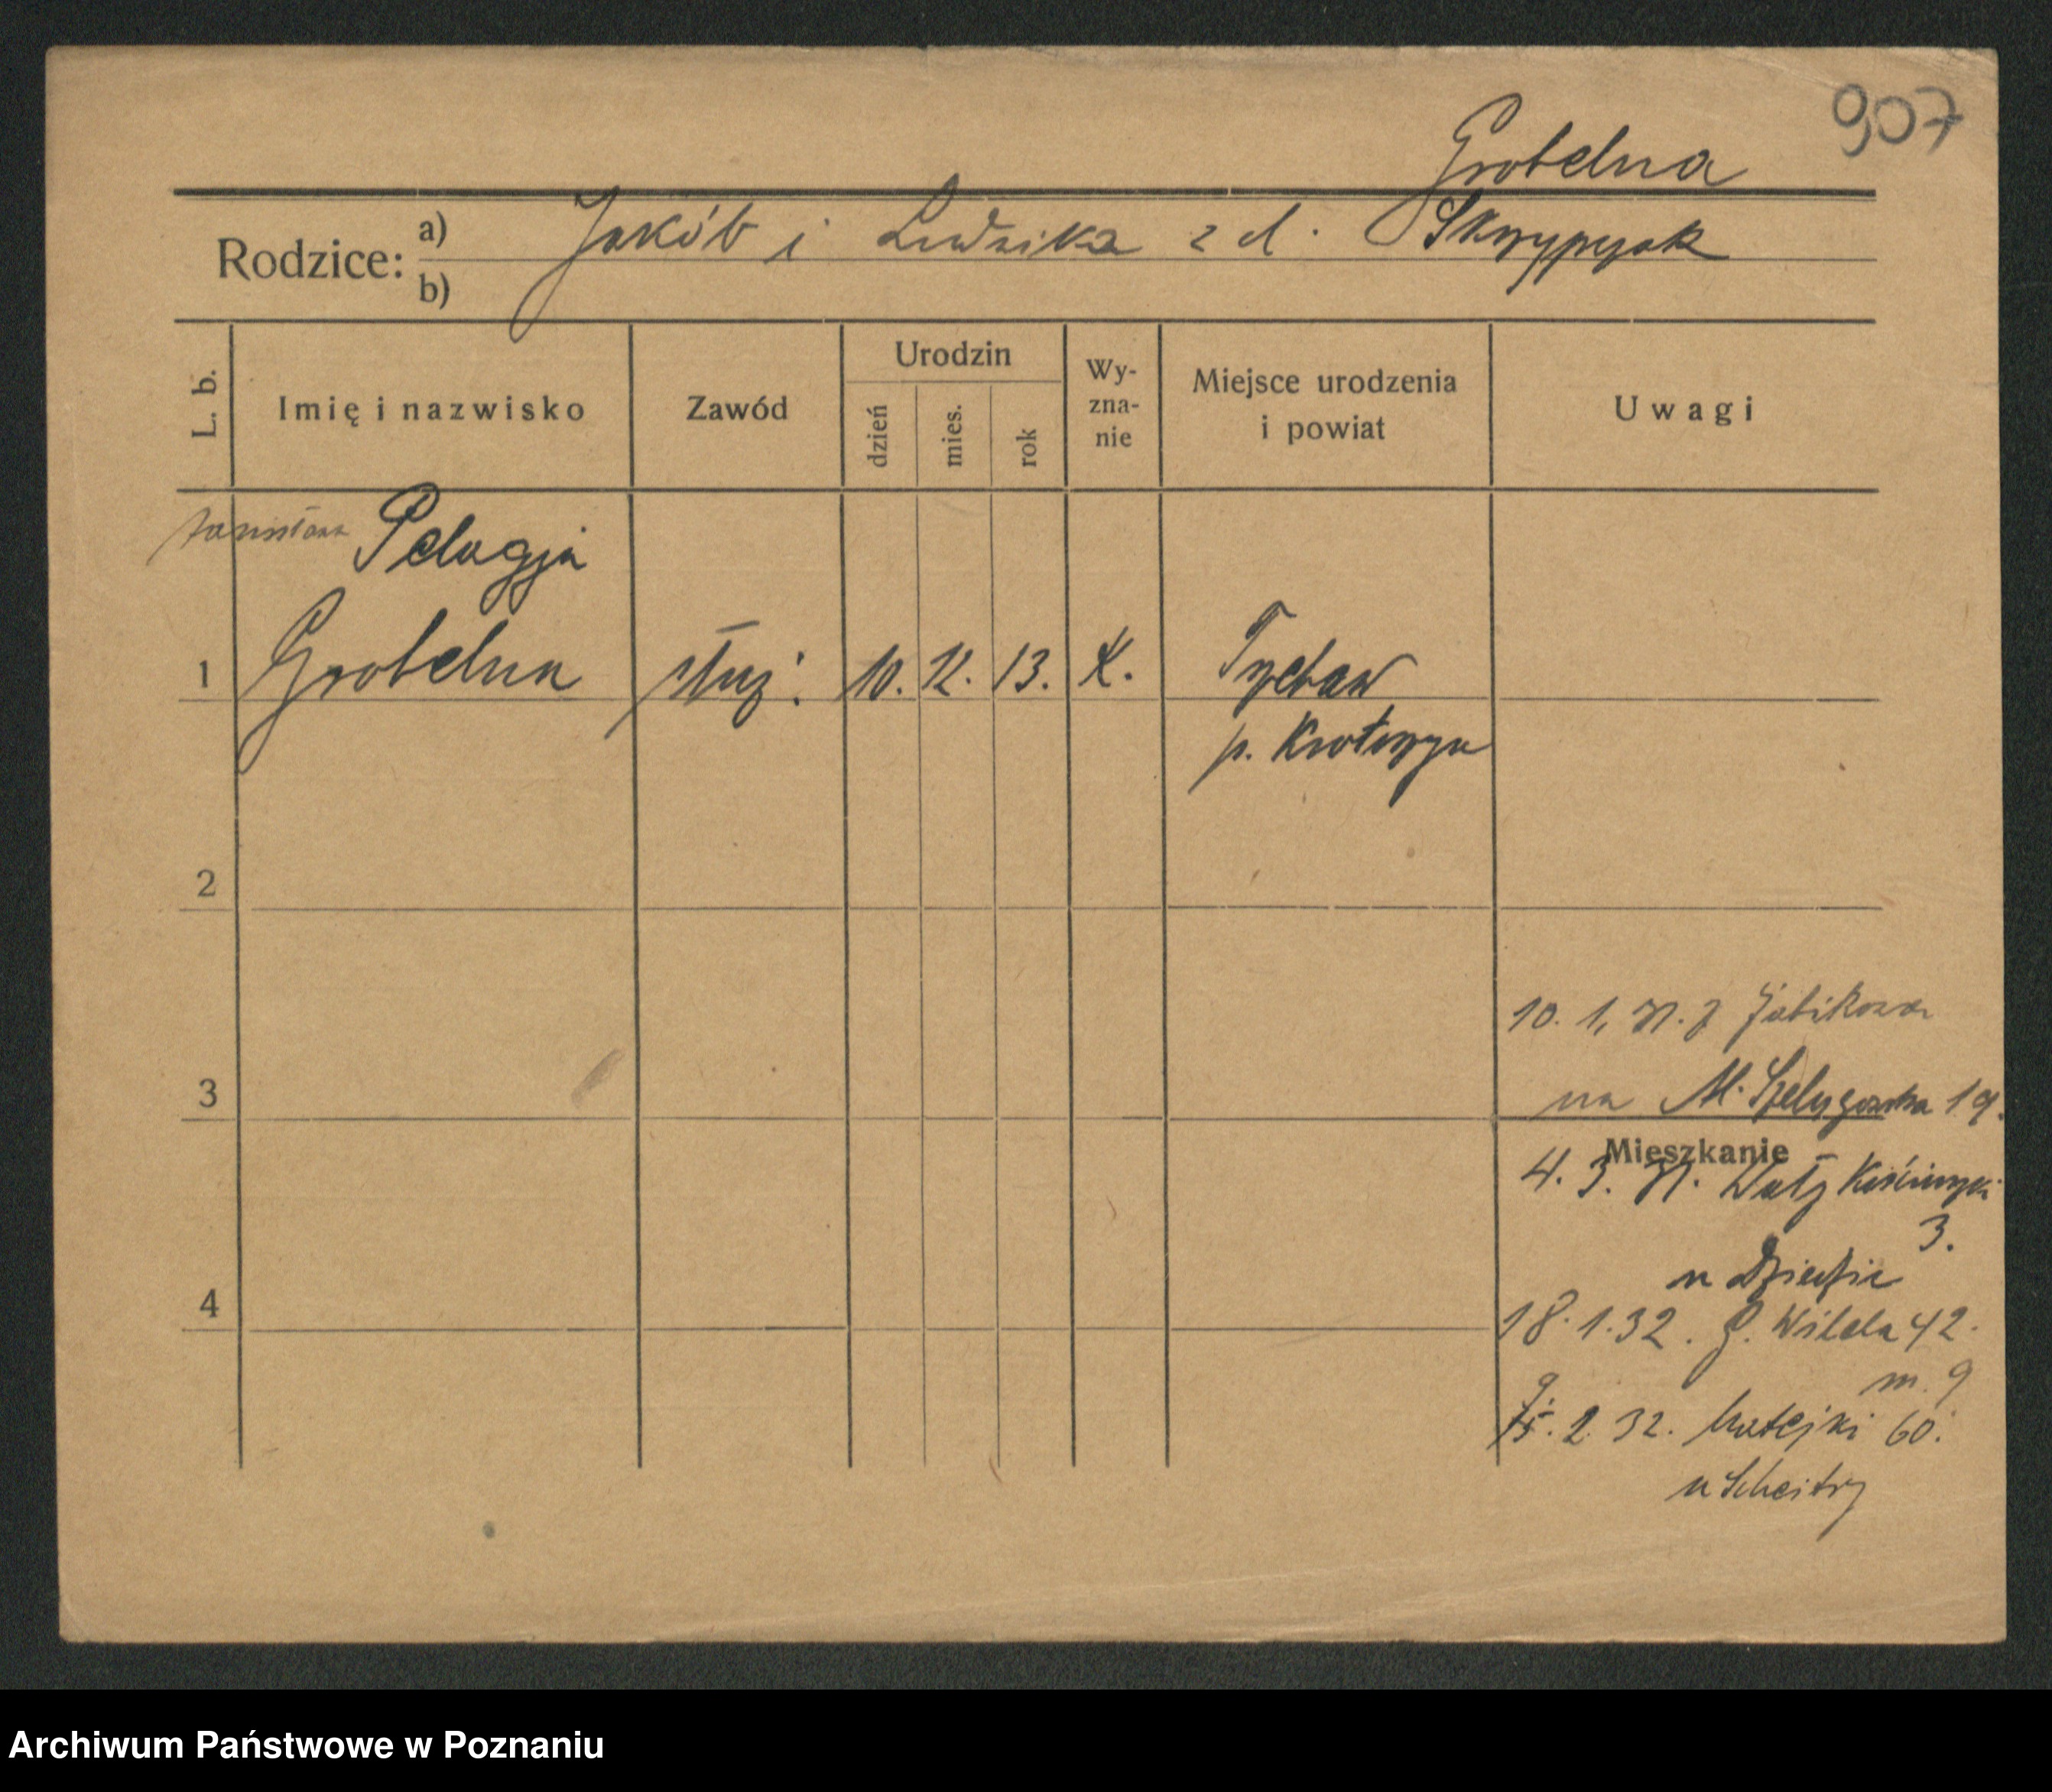 907
Grobelna
Rodzice: a) Jakób i Ludwika z d. Skrzypczak
b)
L. b.
Imię i nazwisko
Zawód
Urodzin
dzień
mies.
rok
Wy-
zna-
nie
Miejsce urodzenia
i powiat
Uwagi
Pelagja
1 Grobelna służ: 10. 12. 13. K.
p. Krotoszyn
2
10. 1. 31. z Żabikowa
na M. Szelągowska 19.
3
Mieszkanie
4. 3. 31. Wały
3.
u
4
18. 1. 32. G. Wilda 42.
m. 9
9.
15. 2. 32. Matejki 60.
u
Archiwum Państwowe w Poznaniu